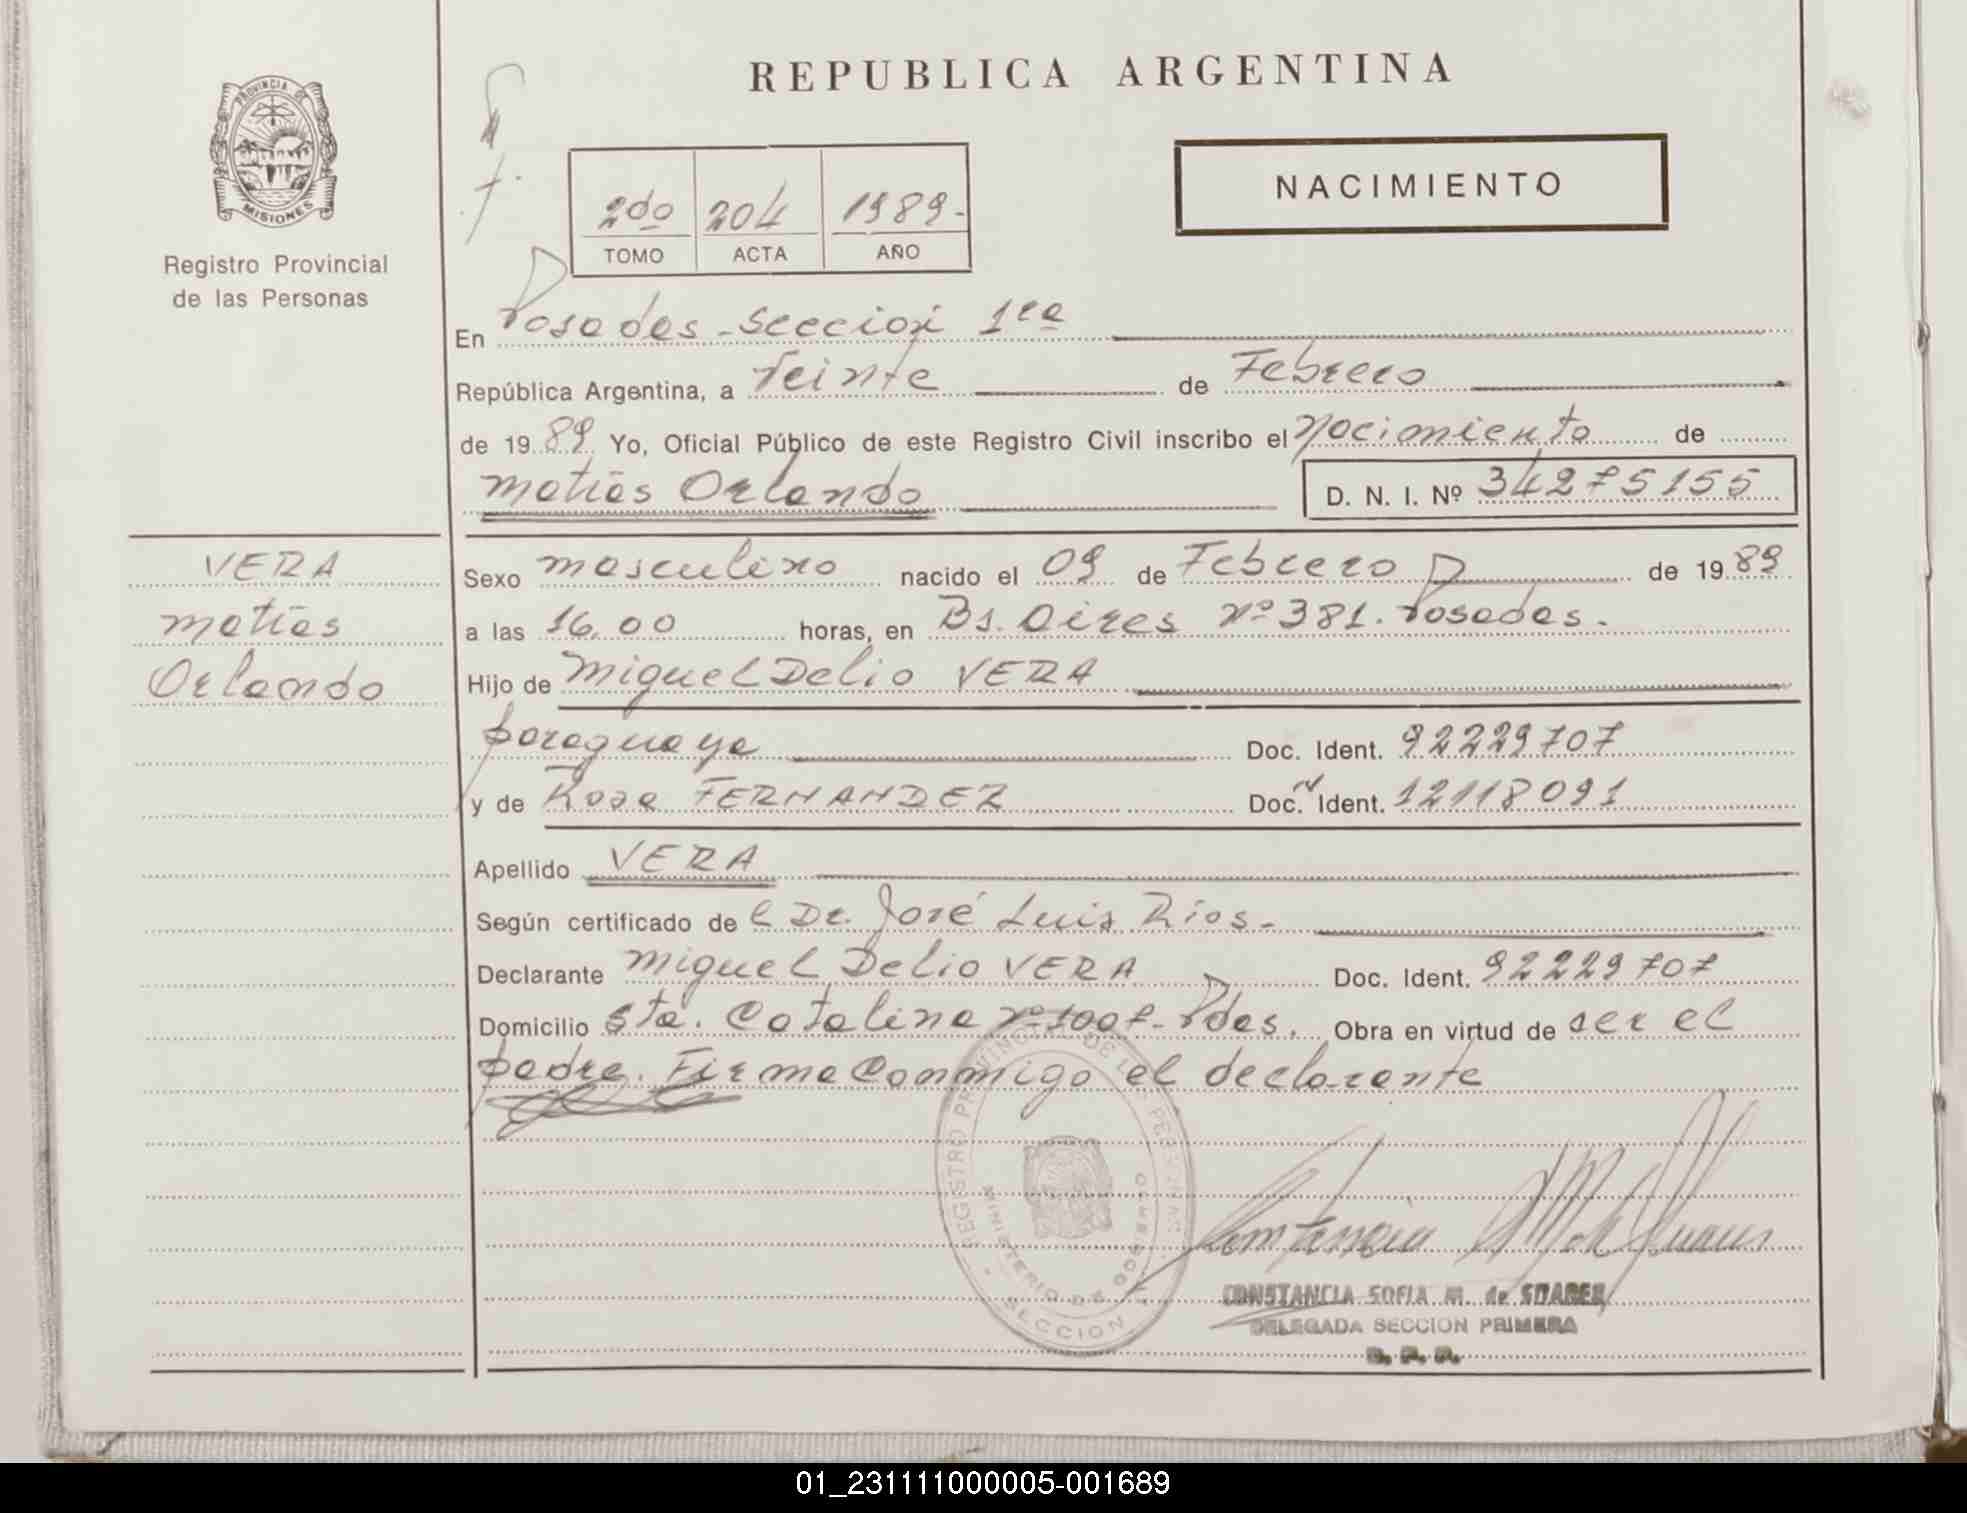 PROVINCIA DE
MISIONES
Registro Provincial
de las Personas
REPUBLICA ARGENTINA
NACIMIENTO
2do 204 1989-
TOMO ACTA AÑO
En Posadas - Seccion 1ra
República Argentina, a Veinte de Febrero
de 19 89 Yo, Oficial Público de este Registro Civil inscribo el Nacimiento de
Matías Orlando D. N. I. Nº 34275155
VERA
Matías
Orlando
Sexo masculino nacido el 09 de Febrero de 19 89
a las 16,00 horas, en Bs. Aires Nº 381. Posadas.
Hijo de Miguel Delio VERA
paraguaya Doc. Ident. 92229707
y de Rosa FERNANDEZ Doc. Ident. 12118091
Apellido VERA
Según certificado de l Dr. José Luis Ríos -
Declarante Miguel Delio VERA Doc. Ident. 92229707
Domicilio Sta. Catalina Nº 1007 - Pdas. Obra en virtud de ser el
padre. Firma Conmigo el declarante
REGISTRO PROVINCIAL DE LAS PERSONAS
MINISTERIO DE GOBIERNO
SECCION
CONSTANCIA SOFIA M. de SUAREZ
DELEGADA SECCION PRIMERA
R. P. P.
01_231111000005-001689